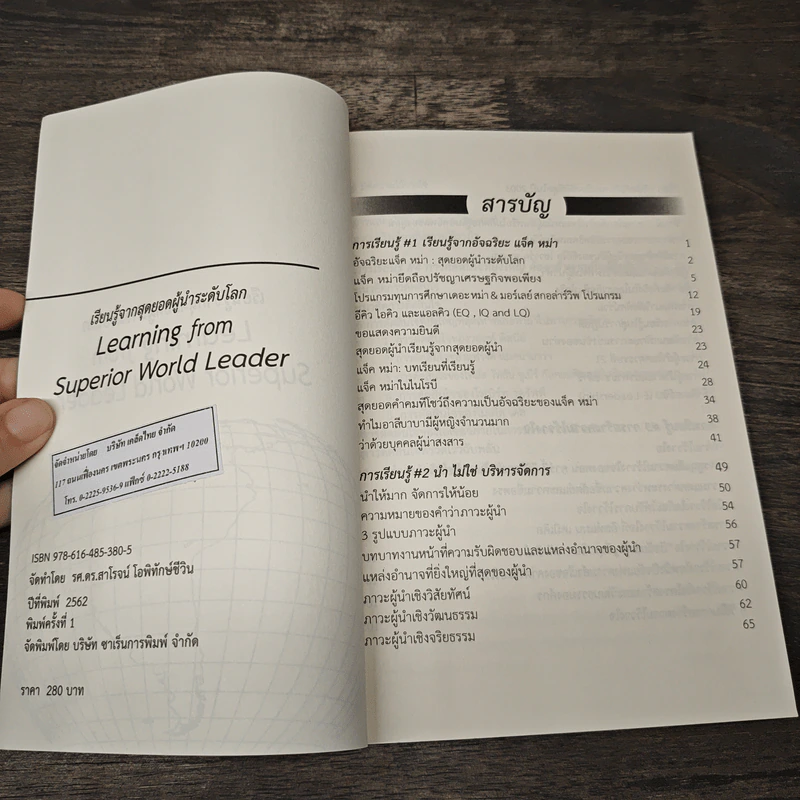 เรียนรู้จากสุดยอดผู้นำระดับโลก
Learning from
Superior World Leader
จัดจำหน่ายโดย บริษัท เคล็ดไทย จำกัด
117 ถนนเฟื่องนคร เขตพระนคร กรุงเทพฯ 10200
โทร. 0-2225-9536-9 แฟ็กซ์ 0-2222-5188
ISBN 978-616-485-380-5
จัดทำโดย รศ.ดร.สาโรจน์ โอพิทักษ์ชีวิน
ปีที่พิมพ์ 2562
พิมพ์ครั้งที่ 1
จัดพิมพ์โดย บริษัท ซาเร็นการพิมพ์ จำกัด
ราคา 280 บาท
สารบัญ
การเรียนรู้ #1 เรียนรู้จากอัจฉริยะ แจ็ค หม่า 1
อัจฉริยะแจ็ค หม่า : สุดยอดผู้นำระดับโลก 2
แจ็ค หม่ายึดถือปรัชญาเศรษฐกิจพอเพียง 5
โปรแกรมทุนการศึกษาเดอะหม่า & มอร์เลย์ สกอล่าร์วีพ โปรแกรม 12
อีคิว ไอคิว และแอลคิว (EQ , IQ and LQ) 19
ขอแสดงความยินดี 23
สุดยอดผู้นำเรียนรู้จากสุดยอดผู้นำ 23
แจ็ค หม่า: บทเรียนที่เรียนรู้ 24
แจ็ค หม่าในไนโรบี 28
สุดยอดคำคมที่โชว์ถึงความเป็นอัจฉริยะของแจ็ค หม่า 34
ทำไมอาลีบาบามีผู้หญิงจำนวนมาก 38
ว่าด้วยบุคคลผู้น่าสงสาร 41
การเรียนรู้ #2 นำ ไม่ใช่ บริหารจัดการ 49
นำให้มาก จัดการให้น้อย 50
ความหมายของคำว่าภาวะผู้นำ 54
3 รูปแบบภาวะผู้นำ 56
บทบาทงานหน้าที่ความรับผิดชอบและแหล่งอำนาจของผู้นำ 57
แหล่งอำนาจที่ยิ่งใหญ่ที่สุดของผู้นำ 57
ภาวะผู้นำเชิงวิสัยทัศน์ 60
ภาวะผู้นำเชิงวัฒนธรรม 62
ภาวะผู้นำเชิงจริยธรรม 65